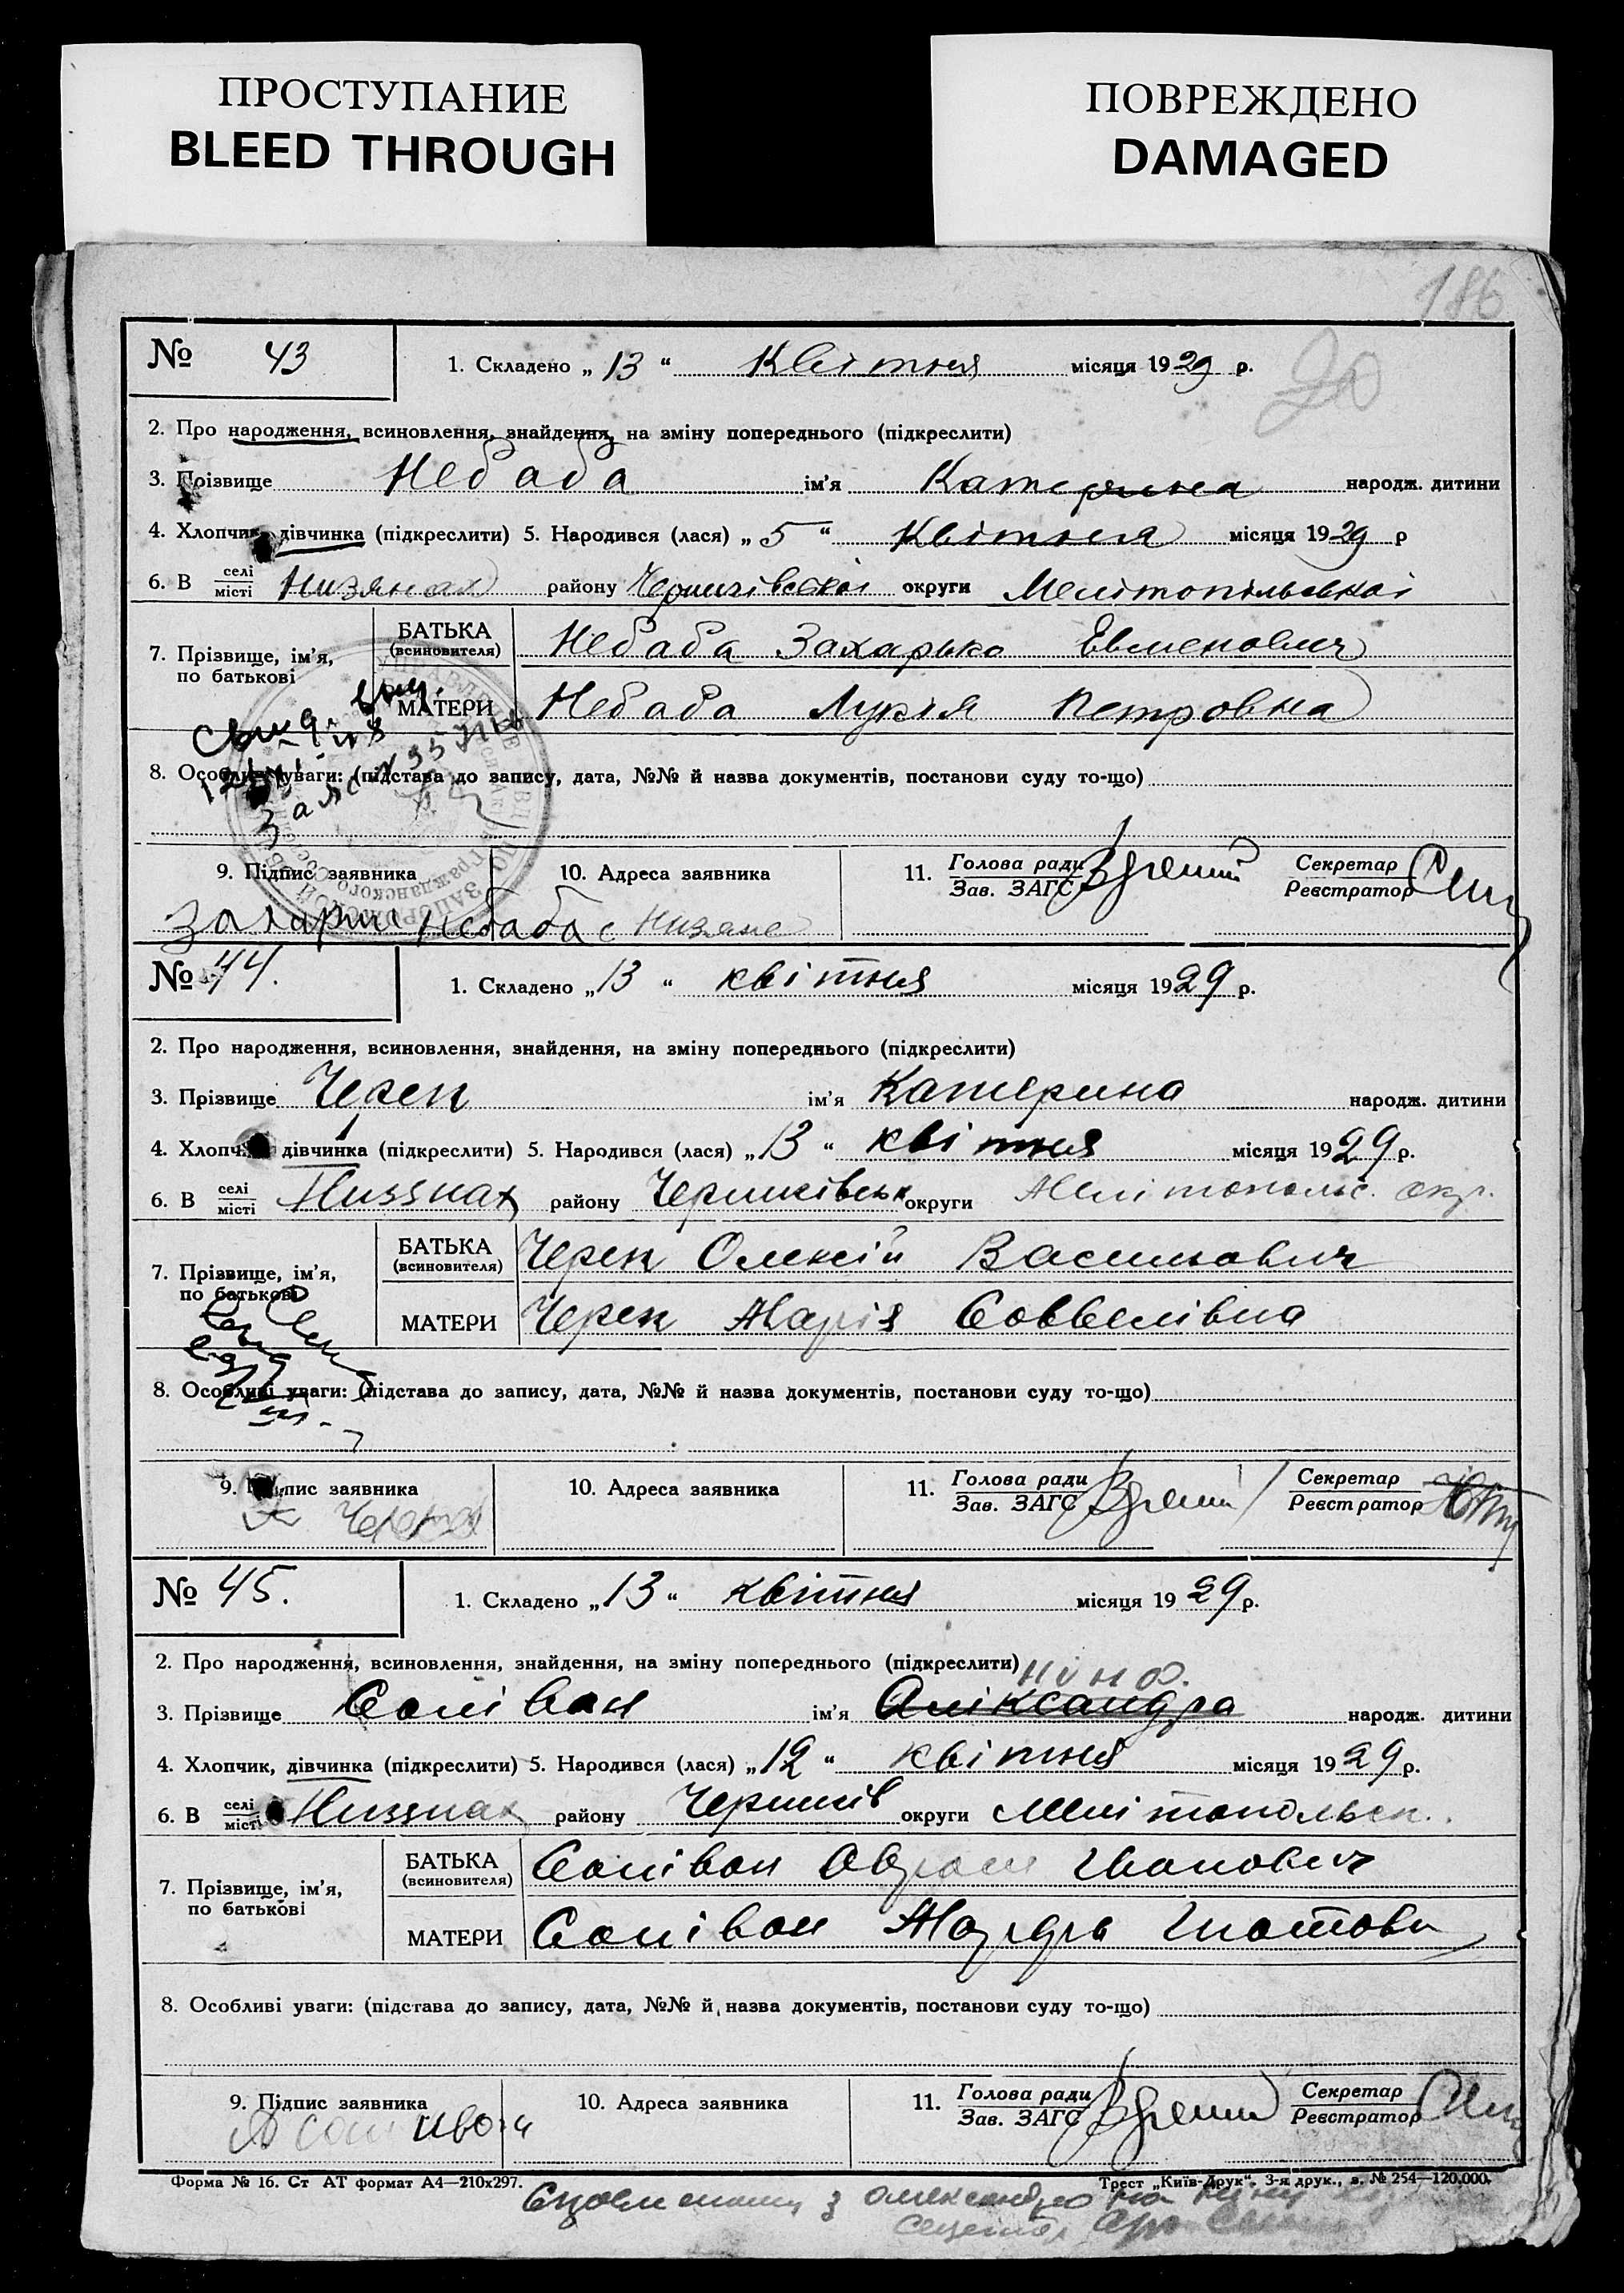 ПРОСТУПАНИЕ
BLEED THROUGH
ПОВРЕЖДЕНО
DAMAGED
186
20
№ 43
1. Складено „ 13 “ Квітня місяця 1929 р.
2. Про народження, всиновлення, знайдення, на зміну попереднього (підкреслити)
3. Прізвище Небаба ім'я Катерина народж. дитини
4. Хлопчик, дівчинка (підкреслити) 5. Народився (лася) „ 5 “ Квітня місяця 1929 р
6. В селі місті Низянах району Чернигівської округи Мелітопільської
7. Прізвище, ім'я, по батькові
БАТЬКА (всиновителя) Небаба Захарько Евменович
МАТЕРИ Небаба Лукія Петровна
8. Особливі уваги: (підстава до запису, дата, №№ й назва документів, постанови суду то-що)
9. Підпис заявника
10. Адреса заявника
11. Голова ради Зав. ЗАГС
Секретар Реєстратор
Небаба с Низяне
№ 44.
1. Складено „ 13 “ квітня місяця 1929 р.
2. Про народження, всиновлення, знайдення, на зміну попереднього (підкреслити)
3. Прізвище Череп ім'я Катерина народж. дитини
4. Хлопчик, дівчинка (підкреслити) 5. Народився (лася) „ 13 “ квітня місяця 1929 р.
6. В селі місті Низянах району Чернигівськ округи Мелітопольс. окр.
7. Прізвище, ім'я, по батькові
БАТЬКА (всиновителя) Череп Олексій Васильович
МАТЕРИ Череп Марія Соввелівна
8. Особливі уваги: (підстава до запису, дата, №№ й назва документів, постанови суду то-що)
9. Підпис заявника
10. Адреса заявника
11. Голова ради Зав. ЗАГС
Секретар Реєстратор
№ 45.
1. Складено „ 13 “ квітня місяця 1929 р.
2. Про народження, всиновлення, знайдення, на зміну попереднього (підкреслити)
Ніна.
3. Прізвище Солівон ім'я Аліксандра народж. дитини
4. Хлопчик, дівчинка (підкреслити) 5. Народився (лася) „ 12 “ квітня місяця 1929 р.
6. В селі місті Низянах району Чернигів округи Мелітопольск.
7. Прізвище, ім'я, по батькові
БАТЬКА (всиновителя) Солівон Іванович
МАТЕРИ Солівон
8. Особливі уваги: (підстава до запису, дата, №№ й назва документів, постанови суду то-що)
9. Підпис заявника
10. Адреса заявника
11. Голова ради Зав. ЗАГС
Секретар Реєстратор
Форма № 16. Ст АТ формат А4—210х297.
Трест „Київ-Друк“. 3-я друк., з. № 254—120.000.